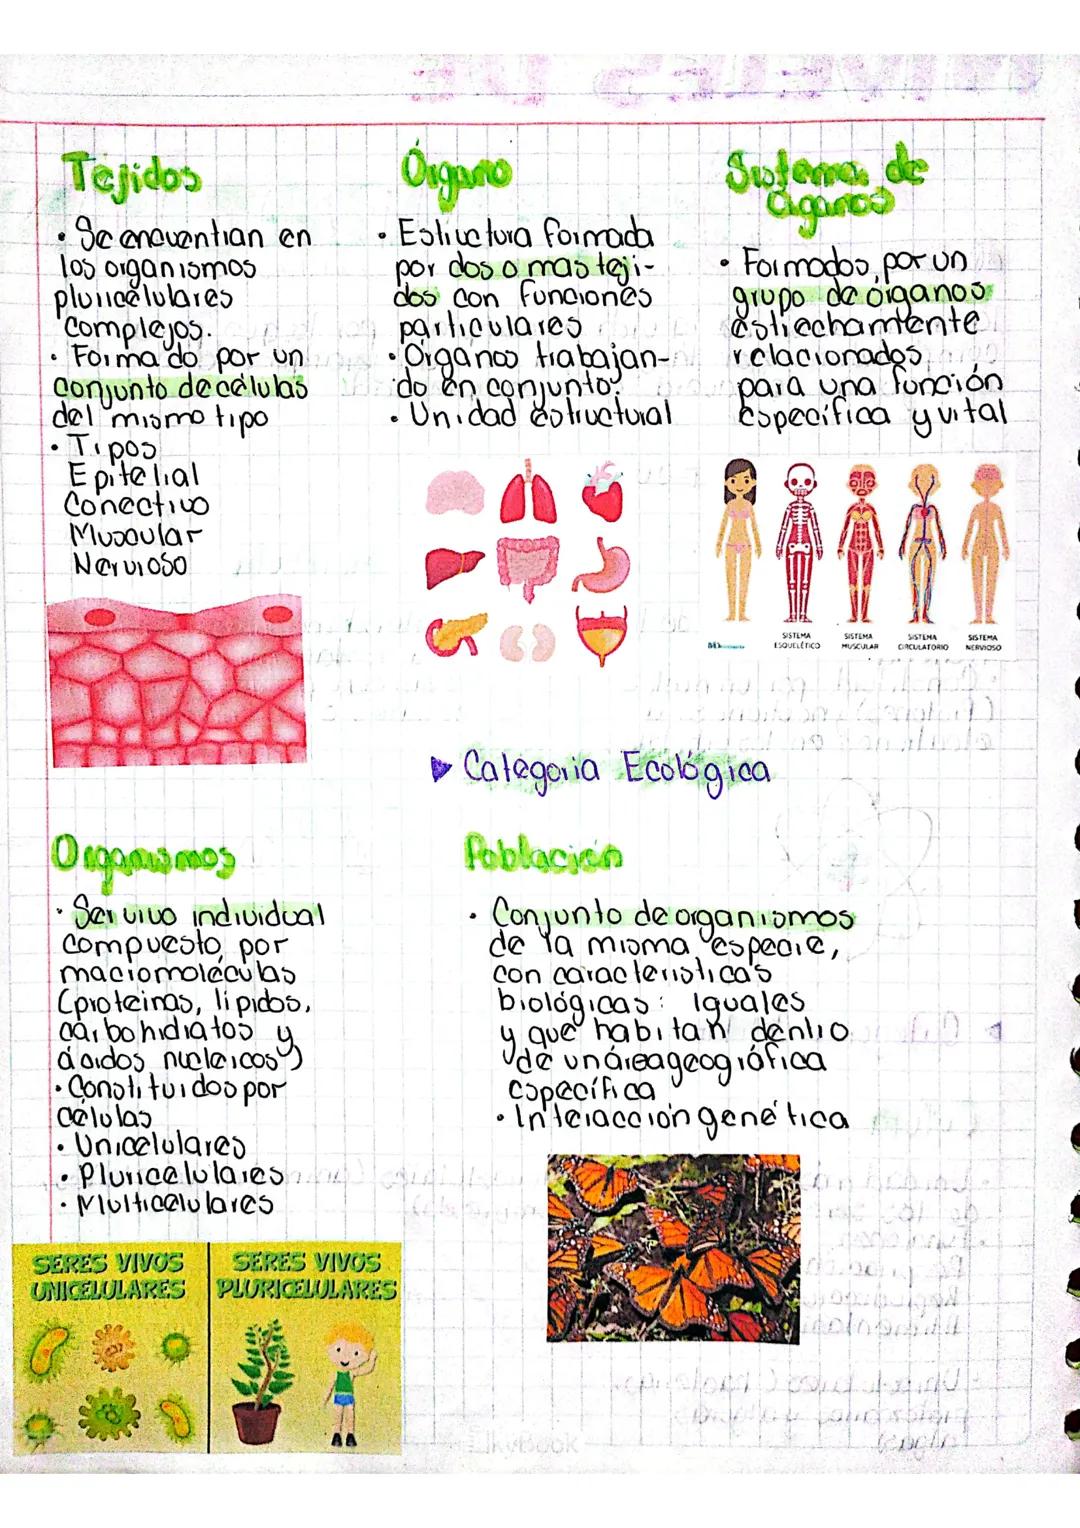 Tejidos
• Se encuentran en
los organismos
pluricelulares
complejos.
• Formado por un
conjunto de células
del mismo tipo
• Tipos
Epitelial
Conectivo
Muscular
Nervioso
Órgano
• Estructura formada
por dos o mas teji-
dos con funciones
particulares
• Organos trabajan-
do en conjunto.
• Unidad estructural
Sistema de
organos
• Formados por un
grupo de órganos
estrechamente
relacionados
para una función
específica y vital
SISTEMA
ESQUELÉTICO
SISTEMA
MUSCULAR
SISTEMA
CIRCULATORIO
SISTEMA
NERVIOSO
▶ Categoria Ecológica
Organismos
• Ser vivo individual
compuesto por
macromoléculas
(proteinas, lipidos,
carbohidratos y
ácidos nucleicos)
• Constituidos por
células
• Unicelulares
• Pluricelulares
• Multicelulares
SERES VIVOS
UNICELULARES
SERES VIVOS
PLURICELULARES
Población
• Conjunto de organismos
de la misma especie,
con caracteristicas
biológicas: iguales
y que habitan dentro
de un área geográfica
específica
• Interacción genética